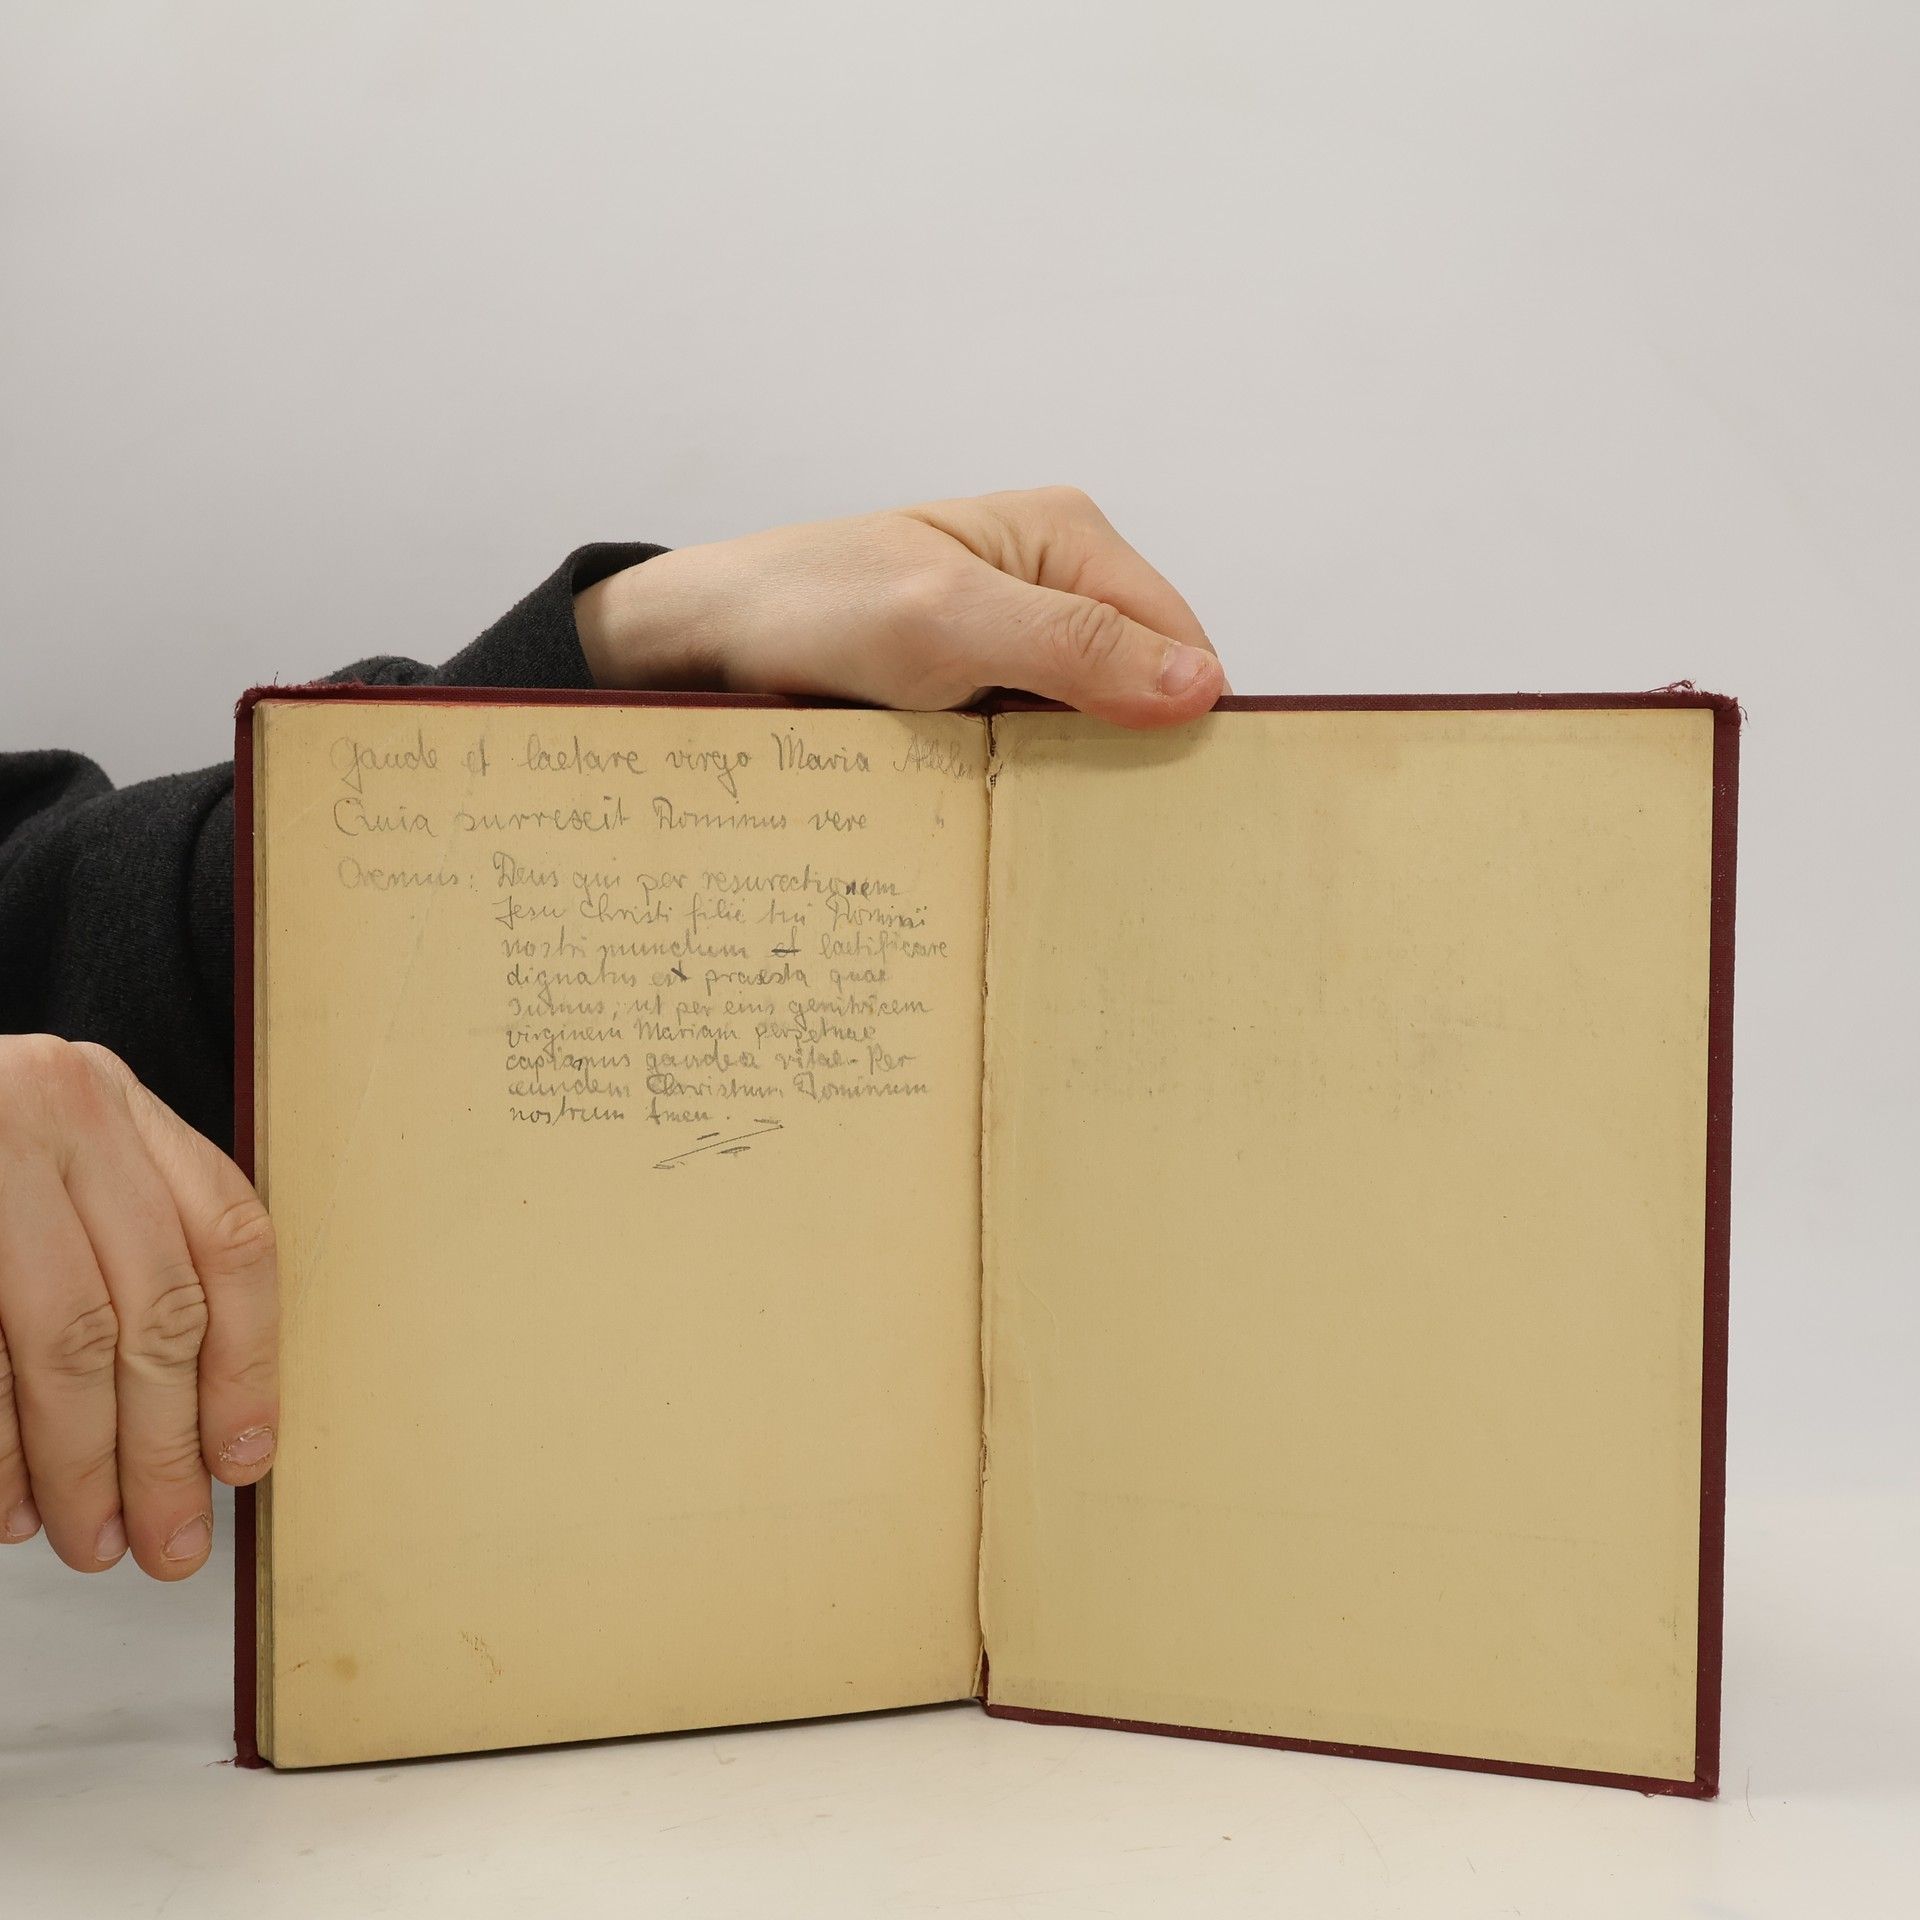 Gaude et laetare virgo Maria Allelu
Quia surrexeit Dominus vere "
Oremus: Deus qui per resurectionem
Jesu Christi filii tui Domini
nostri munclum et laetificare
dignatus est praesta quae
sumus, ut per eius genitricem
virginem Mariam perpetuae
capiamus gaudea vitae. Per
eundem Christum Dominum
nostrum Amen.